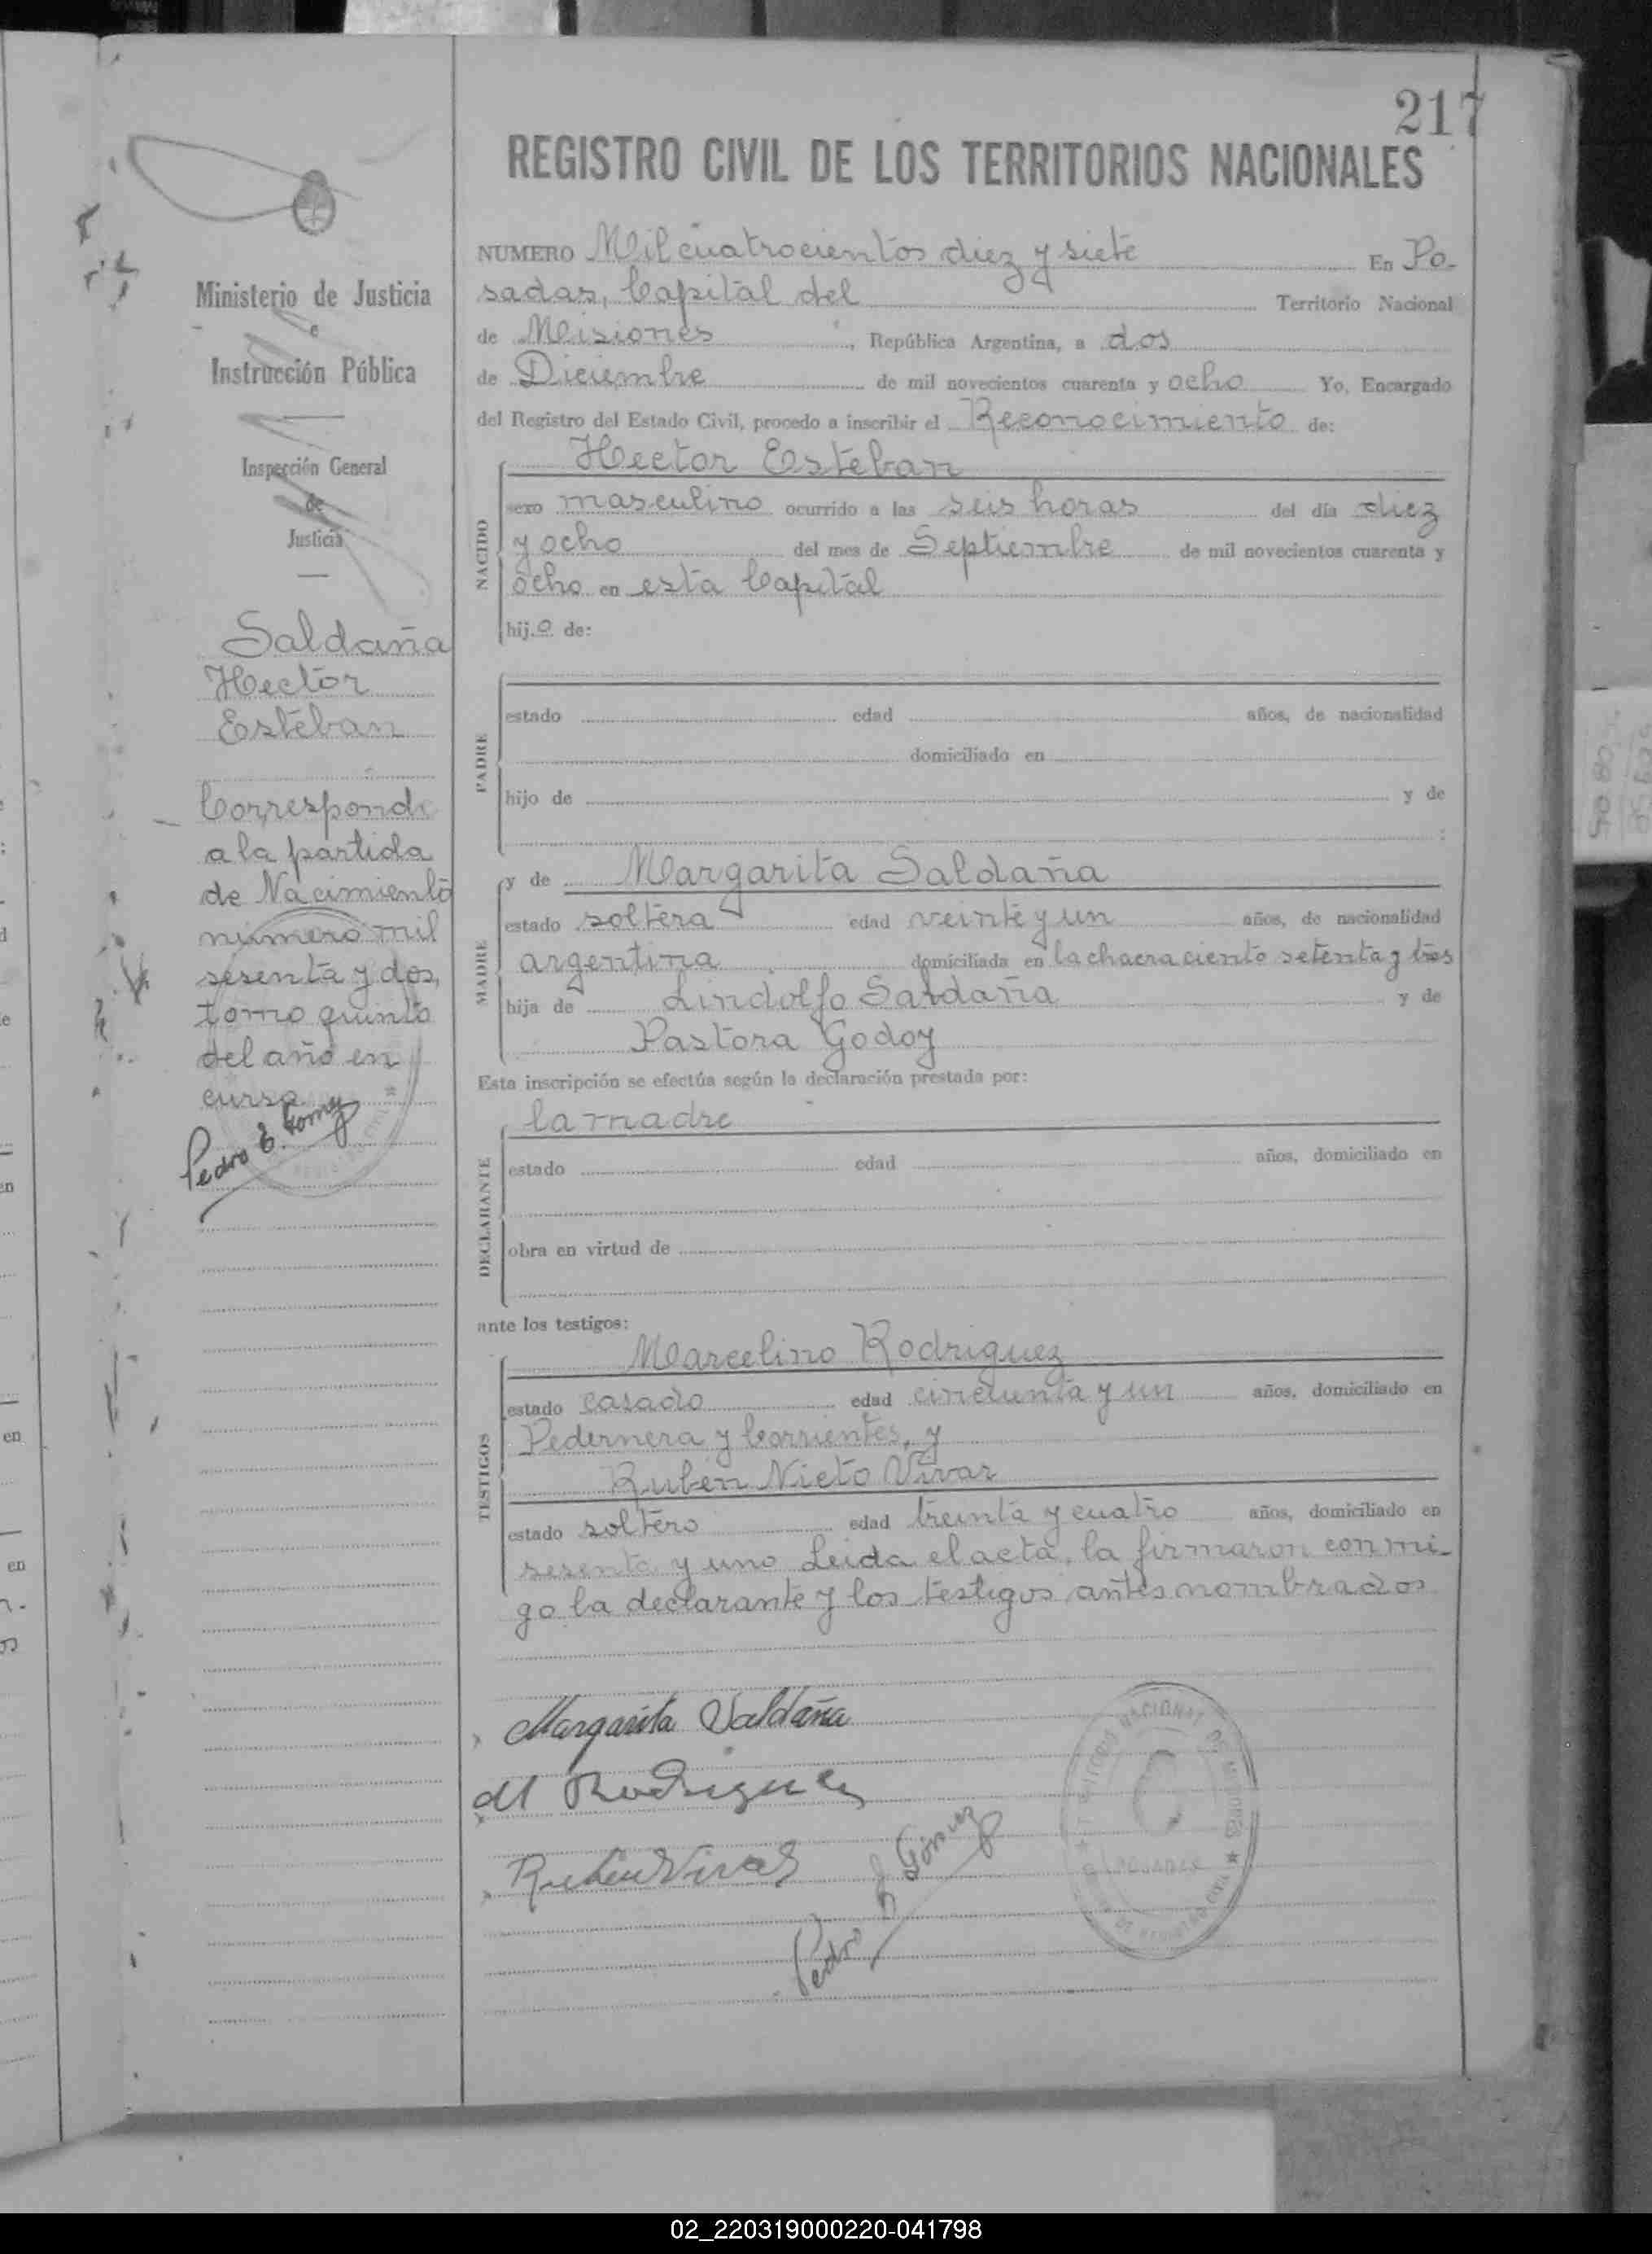 217
REGISTRO CIVIL DE LOS TERRITORIOS NACIONALES
Ministerio de Justicia
e
Instrucción Pública
Inspección General
de
Justicia
Saldaña
Hector
Esteban
Corresponde
a la partida
de Nacimiento
número mil
sesenta y dos,
tomo quinto
del año en
curso
Pedro E. Gomez
NUMERO Mil cuatrocientos diez y siete En Po-
sadas, Capital del Territorio Nacional
de Misiones, República Argentina, a dos
de Diciembre de mil novecientos cuarenta y ocho Yo, Encargado
del Registro del Estado Civil, procedo a inscribir el Reconocimiento de:
NACIDO
Hector Esteban
sexo masculino ocurrido a las seis horas del día diez
y ocho del mes de Septiembre de mil novecientos cuarenta y
ocho en esta Capital
hijo de:
PADRE
estado edad años, de nacionalidad
domiciliado en
hijo de y de
:
MADRE
y de Margarita Saldaña
estado soltera edad veinte y un años, de nacionalidad
argentina domiciliada en la chacra ciento setenta y tres
hija de Lindolfo Saldaña y de
Pastora Godoy
Esta inscripción se efectúa según la declaración prestada por:
DECLARANTE
la madre
estado edad años, domiciliado en
obra en virtud de
ante los testigos:
TESTIGOS
Marcelino Rodriguez
estado casado edad cincuenta y un años, domiciliado en
Pedernera y Corrientes, y
Ruben Nieto Vivar
estado soltero edad treinta y cuatro años, domiciliado en
sesenta y uno Leida el acta, la firmaron conmi-
go la declarante y los testigos antes nombrados
Margarita Saldaña
M Rodriguez
Ruben Vivar
Pedro E Gómez
TERRITORIO NACIONAL DE MISIONES
POSADAS
02_220319000220-041798